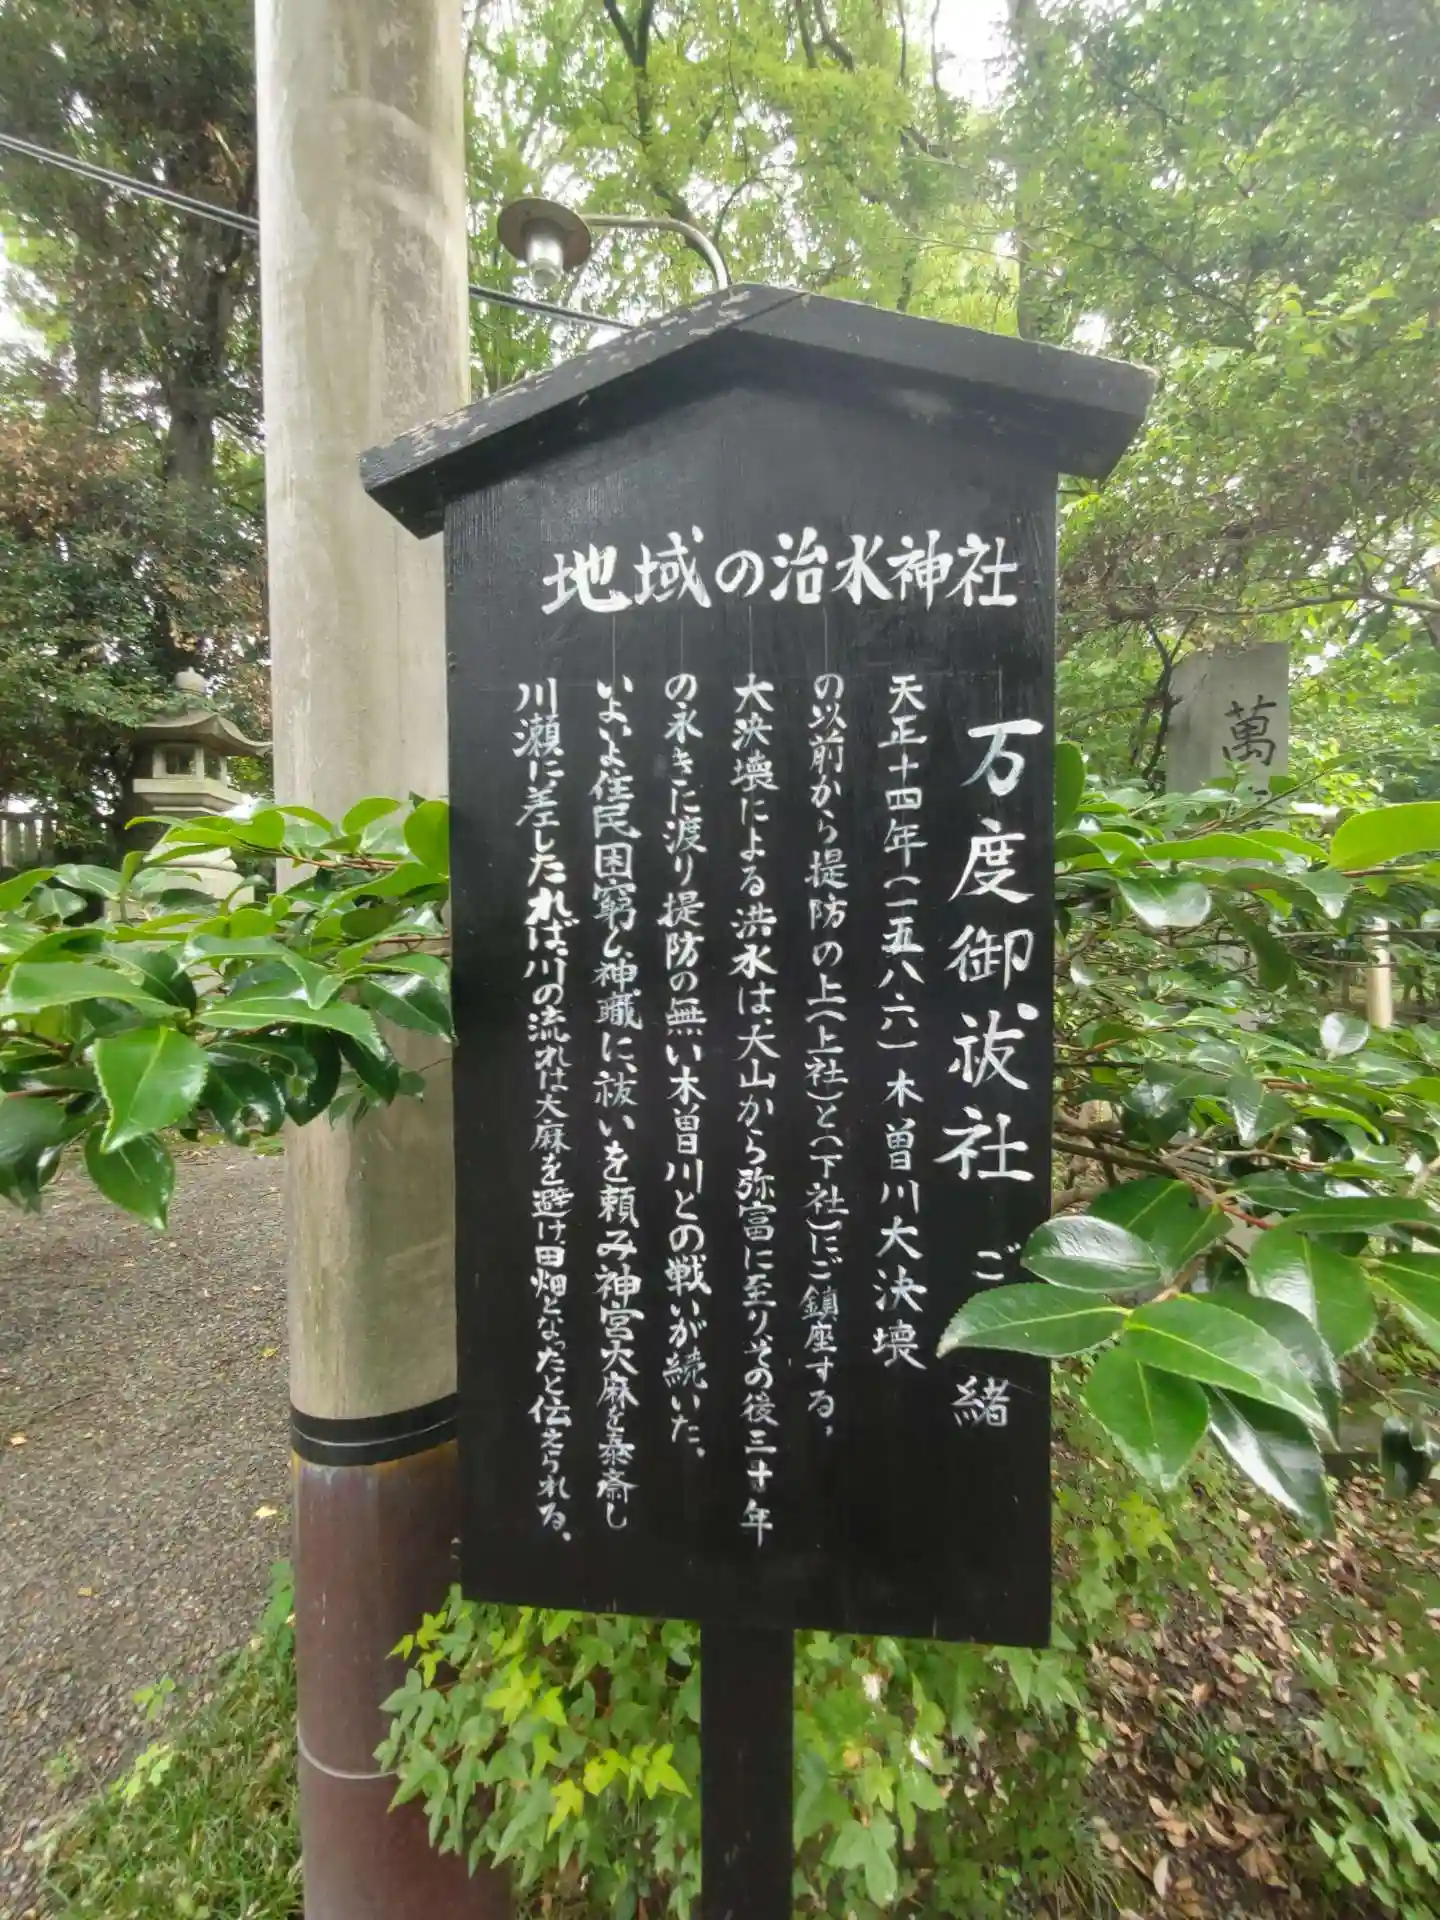 地域の治水神社
万度御祓社 ご 緒
天正十四年(一五八六)木曽川大決壊
の以前から提防の上(上社)と(下社)にご鎮座する,
大決壊による洪水は犬山から弥富に至りその後三十年
の永きに渡り提防の無い木曽川との戦いが続いた、
いよいよ住民困窮し神職に祓いを頼み神宮大麻を奉斎し
川瀬に差したれば川の流れは大麻を避け田畑となったと伝えられる、
萬